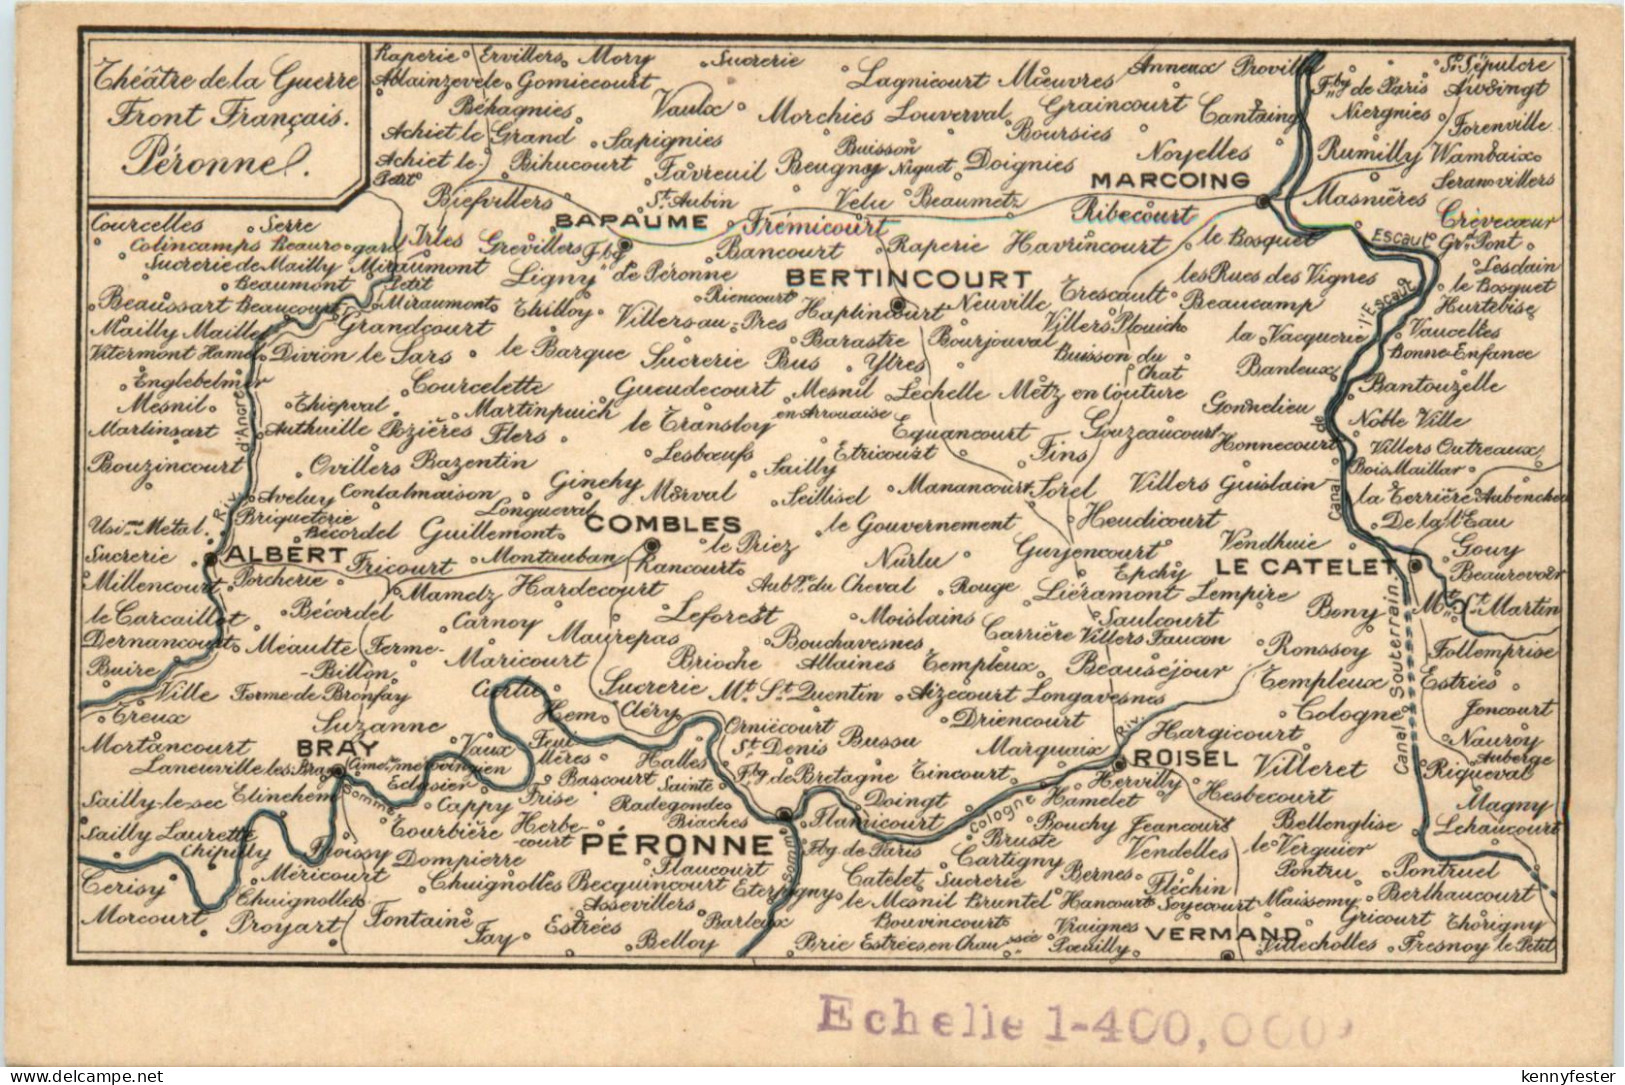 Théâtre de la Guerre
Front Français.
Péronne.
Raperie Ervillers Mory Sucrerie Lagnicourt Mœuvres Anneux Proville St Sépulcre
Ablainzevele Gomiecourt Fbg de Paris Awoingt
Béhagnies Vaulx Morchies Louverval Graincourt Cantaing Niergnies Forenville
Achiet le Grand Sapignies Buisson Boursies Noyelles Rumilly Wambaix
Achiet le Petit Bihucourt Favreuil Beugny Niguet Doignies Seranvillers
Biefvillers St. Aubin Velu Beaumetz MARCOING Masnières
Courcelles Serre Irles Grevillers BAPAUME Frémicourt Ribecourt Crèvecœur
Colincamps Beauregard Fbg de Péronne Bancourt Raperie Havrincourt le Bosquet Escaut Gd Pont
Sucrerie de Mailly Miraumont Ligny BERTINCOURT les Rues des Vignes Lesdain
Beaumont Petit Miraumont Thilloy Riencourt Haplincourt Neuville Trescault Beaucamp l'Escaut le Bosquet
Beaussart Beaucourt Grandcourt Villers au Pres Villers Plouich Hurtebise
Mailly Mailley Barastre Bourjouval la Vacquerie Vaucelles
Vitermont Hamel Divion le Sars le Barque Sucrerie Bus Ytres Buisson du Chat Bonne-Enfance
Englebelmer Courcelette Gueudecourt Mesnil en Arrouaise Lechelle Metz en Couture Banteux Bantouzelle
Mesnil Thiepval Martinpuich le Transloy Gonnelieu Noble Ville
Martinsart d'Ancre Authuille Pozières Flers Equancourt Gouzeaucourt Honnecourt
Bouzincourt Ovillers Bazentin Lesbœufs Sailly Etricourt Fins Villers Outreaux
Ginchy Morval Saillisel Manancourt Sorel Villers Guislain Bois Maillar
Riv. Aveluy Contalmaison Longueval Canal de la Terrière Aubencheu
Usi.ne Metal. Briqueterie Bécordel Guillemont COMBLES le Gouvernement Heudicourt De la l'Eau
Sucrerie ALBERT Fricourt Montauban Rancourt le Priez Nurlu Gurjencourt Vendhuie LE CATELET Gouy
Millencourt Porcherie Mametz Hardecourt Aub.ge du Cheval Rouge Epchy Beaurevoir
le Carcaillot Bécordel Carnoy Leforest Moislains Liéramont Lempire Bony Mt. St. Martin
Dernancourt Méaulte Ferme-Billon Maurepas Bouchavesnes Carrière Saulcourt Villers Faucon Ronssoy Follemprise
Buire Maricourt Brioche Allaines Templeux Beauséjour Templeux Estrées
Ville Ferme de Bronfay Curlu Sucrerie Mt. St. Quentin Aizecourt Longavesnes Canal Souterrain.
Treux Suzanne Hem Cléry Orniécourt Driencourt Riv. Hargicourt Cologne Joncourt
Mortancourt BRAY Vaux Feuillères Halles St. Denis Bussu Marquaix ROISEL Villeret Nauroy
Laneuville les Bray Cimet. merovingien Eclusier Bascourt Sainte Radegonde Fbg de Bretagne Tincourt Hervilly Auberge Riqueval
Sailly-le-sec Etinehem Somme Cappy Frise Biaches Doingt Cologne Hamelet Hesbecourt Magny
Sailly Laurette Tourbière Herbecourt PÉRONNE Flamicourt Bouchy Jeancourt Bellenglise Lehaucourt
Chipilly Froissy Dompierre Flaucourt Fbg de Paris Bruste Vendelles le Verguier
Cerisy Méricourt Chuignolles Becquincourt Eterpigny Catelet Sucrerie Cartigny Bernes Fléchin Pontru Pontruel
Chuignolles Assevillers Somme le Mesnil Bruntel Hancourt Soyecourt Maissemy Berthaucourt
Morcourt Proyart Fontaine Estrées Barleux Bouvincourt Vraignes Gricourt Thorigny
Fay Belloy Brie Estrées en Chaussée Pœuilly VERMAND Villecholles Fresnoy le Petit
Echelle 1-400,000
Delcampe.net
kennyfester